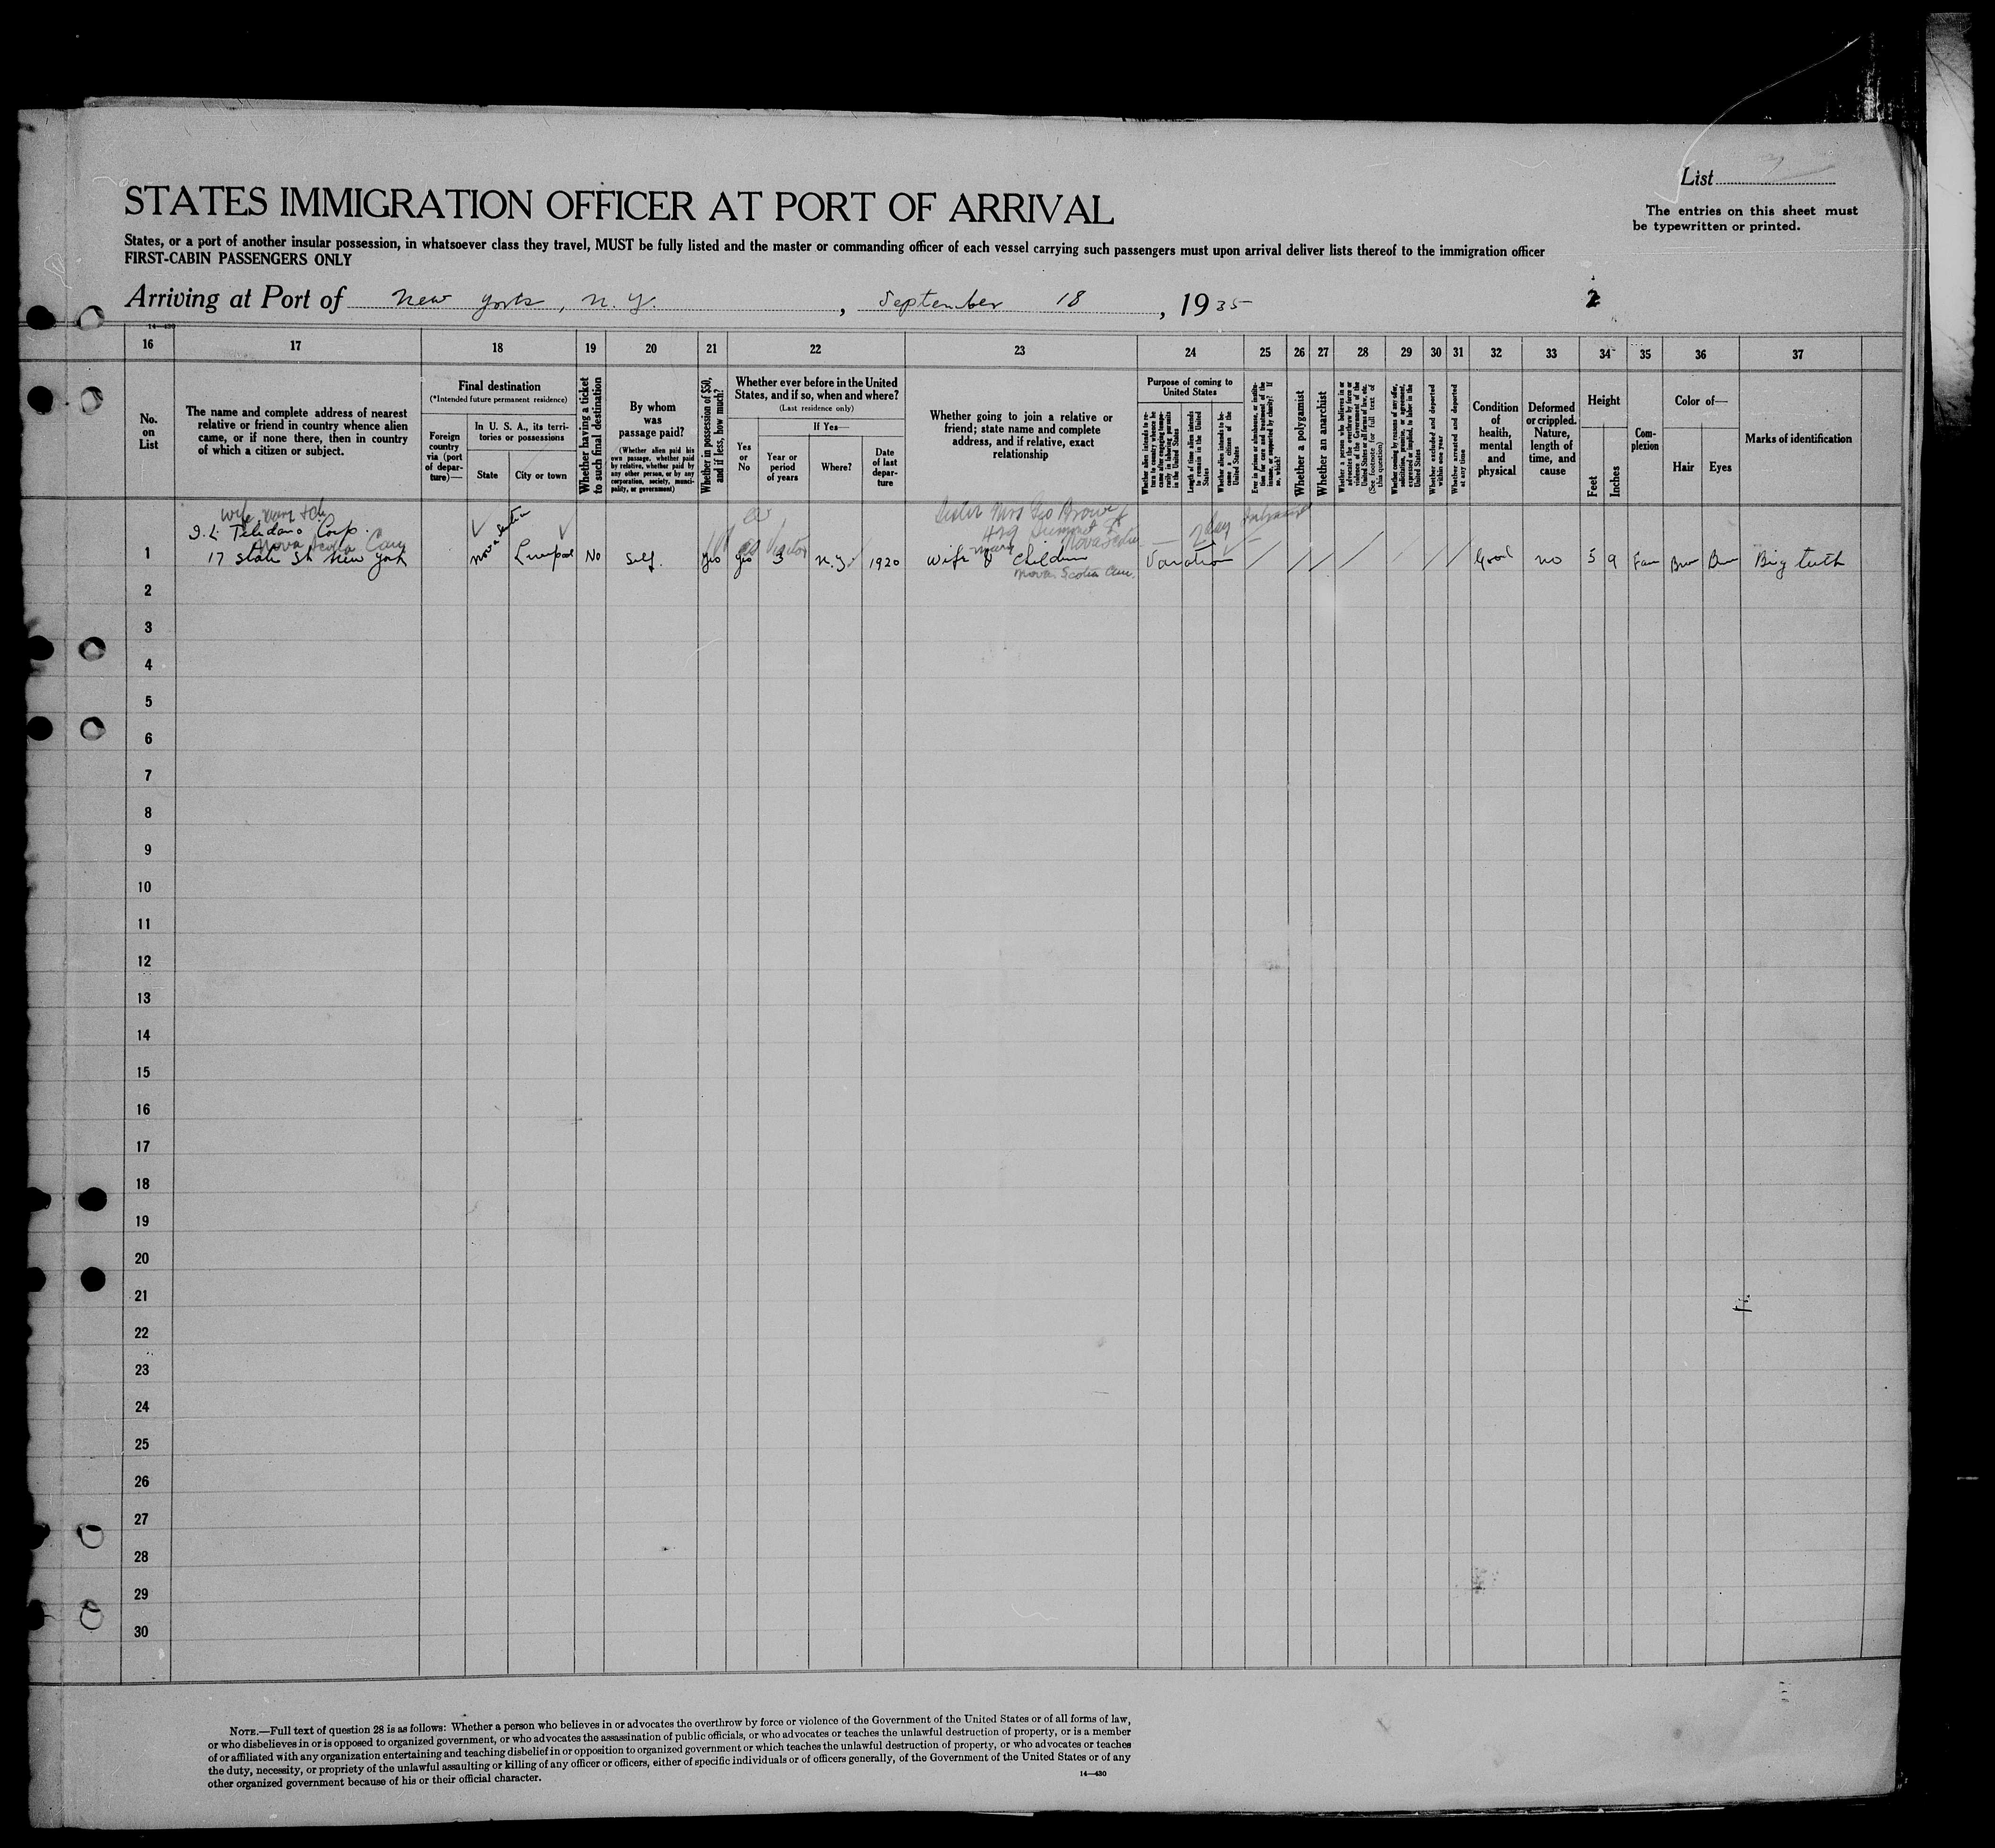 List
The entries on this sheet must
be typewritten or printed.
STATES IMMIGRATION OFFICER AT PORT OF ARRIVAL
States, or a port of another insular possession, in whatsoever class they travel, MUST be fully listed and the master or commanding officer of each vessel carrying such passengers must upon arrival deliver lists thereof to the immigration officer
FIRST-CABIN PASSENGERS ONLY
Arriving at Port of New York, N.Y. , September 18 , 1935
2
14—430
16 17 18 19 20 21 22 23 24 25 26 27 28 29 30 31 32 33 34 35 36 37
No.
on
List
The name and complete address of nearest
relative or friend in country whence alien
came, or if none there, then in country
of which a citizen or subject.
Final destination
(*Intended future permanent residence)
Foreign
country
via (port
of depar-
ture)—
In U. S. A., its terri-
tories or possessions
State
City or town
Whether having a ticket
to such final destination
By whom
was
passage paid?
(Whether alien paid his
own passage, whether paid
by relative, whether paid by
any other person, or by any
corporation, society, munici-
pality, or government)
Whether in possession of $50,
and if less, how much?
Whether ever before in the United
States, and if so, when and where?
(Last residence only)
Yes
or
No
If Yes—
Year or
period
of years
Where?
Date
of last
depar-
ture
Whether going to join a relative or
friend; state name and complete
address, and if relative, exact
relationship
Purpose of coming to
United States
Whether alien intends to re-
turn to country whence he
came after engaging tempo-
rarily in laboring pursuits
in the United States
Length of time alien intends
to remain in the United
States
Whether alien intends to be-
come a citizen of the
United States
Ever in prison or almshouse, or institu-
tion for care and treatment of the
insane, or supported by charity? If
so, which?
Whether a polygamist
Whether an anarchist
Whether a person who believes in or
advocates the overthrow by force or
violence of the Government of the
United States or all forms of law, etc.
(See footnote for full text of
this question)
Whether coming by reasons of any offer,
solicitation, promise, or agreement,
expressed or implied, to labor in the
United States
Whether excluded and deported
within one year
Whether arrested and deported
at any time
Condition
of
health,
mental
and
physical
Deformed
or crippled.
Nature,
length of
time, and
cause
Height
Feet
Inches
Com-
plexion
Color of—
Hair
Eyes
Marks of identification
wife Mary
Sister Mrs Geo Brown
Corp.
Nova Scotia
Nova Scotia
2 day
1 17 State St New York No Self. Yes Yes 3 N.Y. 1920 wife & children Vacation Good no 5 9 Big teeth
Nova Scotia Can.
2
3
4
5
6
7
8
9
10
11
12
13
14
15
16
17
18
19
20
21
22
23
24
25
26
27
28
29
30
NOTE.—Full text of question 28 is as follows: Whether a person who believes in or advocates the overthrow by force or violence of the Government of the United States or of all forms of law,
or who disbelieves in or is opposed to organized government, or who advocates the assassination of public officials, or who advocates or teaches the unlawful destruction of property, or is a member
of or affiliated with any organization entertaining and teaching disbelief in or opposition to organized government or which teaches the unlawful destruction of property, or who advocates or teaches
the duty, necessity, or propriety of the unlawful assaulting or killing of any officer or officers, either of specific individuals or of officers generally, of the Government of the United States or of any
other organized government because of his or their official character.
14—430